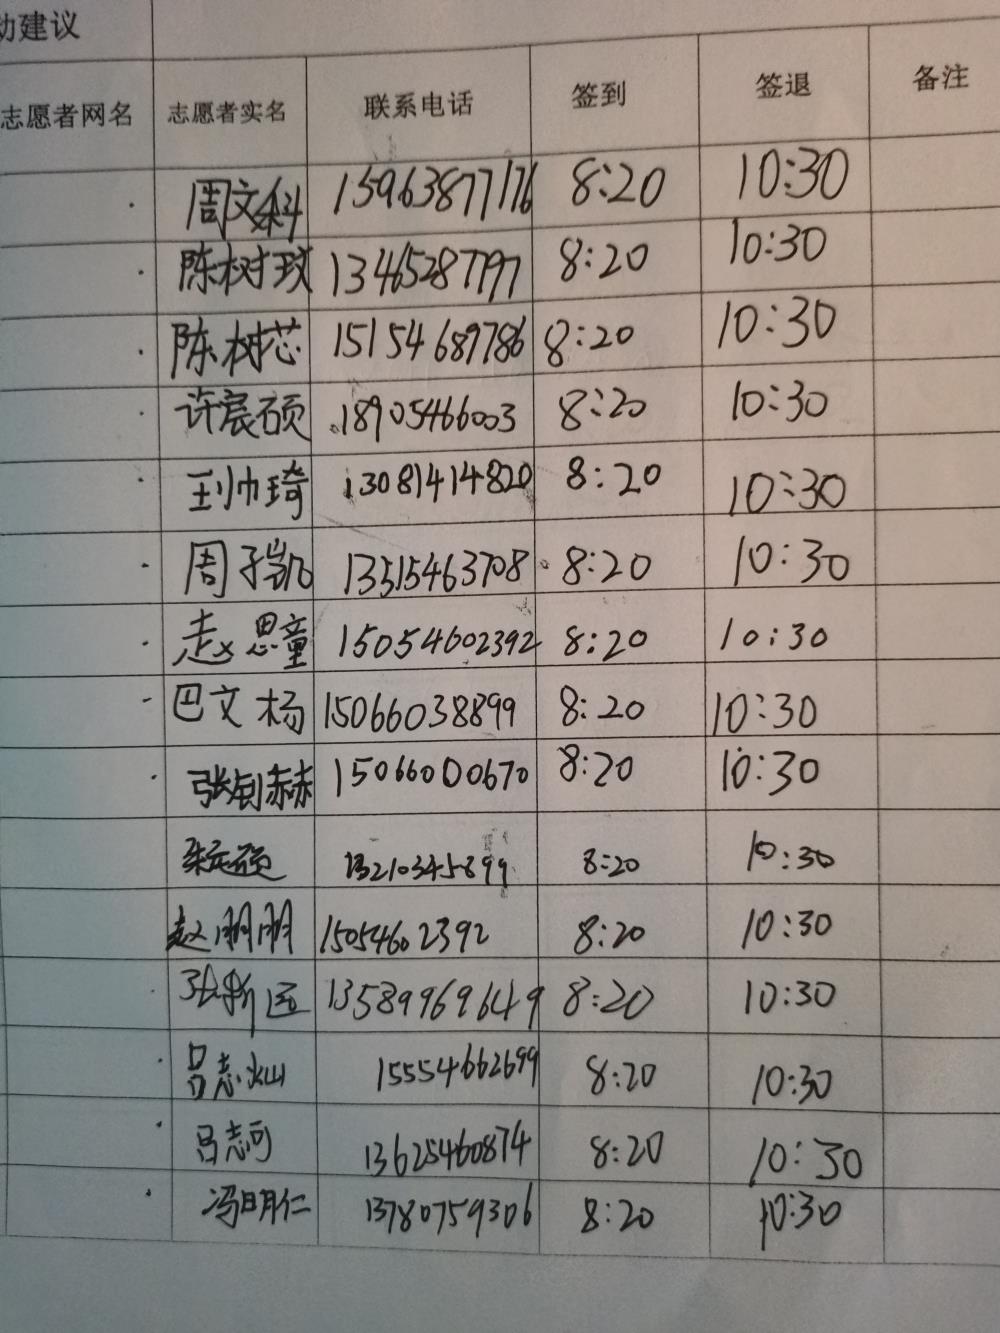 动建议
志愿者网名 志愿者实名 联系电话 签到 签退 备注
周文科 15963877176 8:20 10:30
陈树玟 13465287797 8:20 10:30
陈树芯 15154689786 8:20 10:30
许宸硕 18905466003 8:20 10:30
王帅琦 13081414820 8:20 10:30
周子凯 13515463708 8:20 10:30
赵思童 15054602392 8:20 10:30
巴文杨 15066038899 8:20 10:30
张钊赫 15066000670 8:20 10:30
13210345899 8:20 10:30
赵朋朋 15054602392 8:20 10:30
张新远 13589969649 8:20 10:30
吕志灿 15554662699 8:20 10:30
吕志可 13625460874 8:20 10:30
冯明仁 13780759306 8:20 10:30